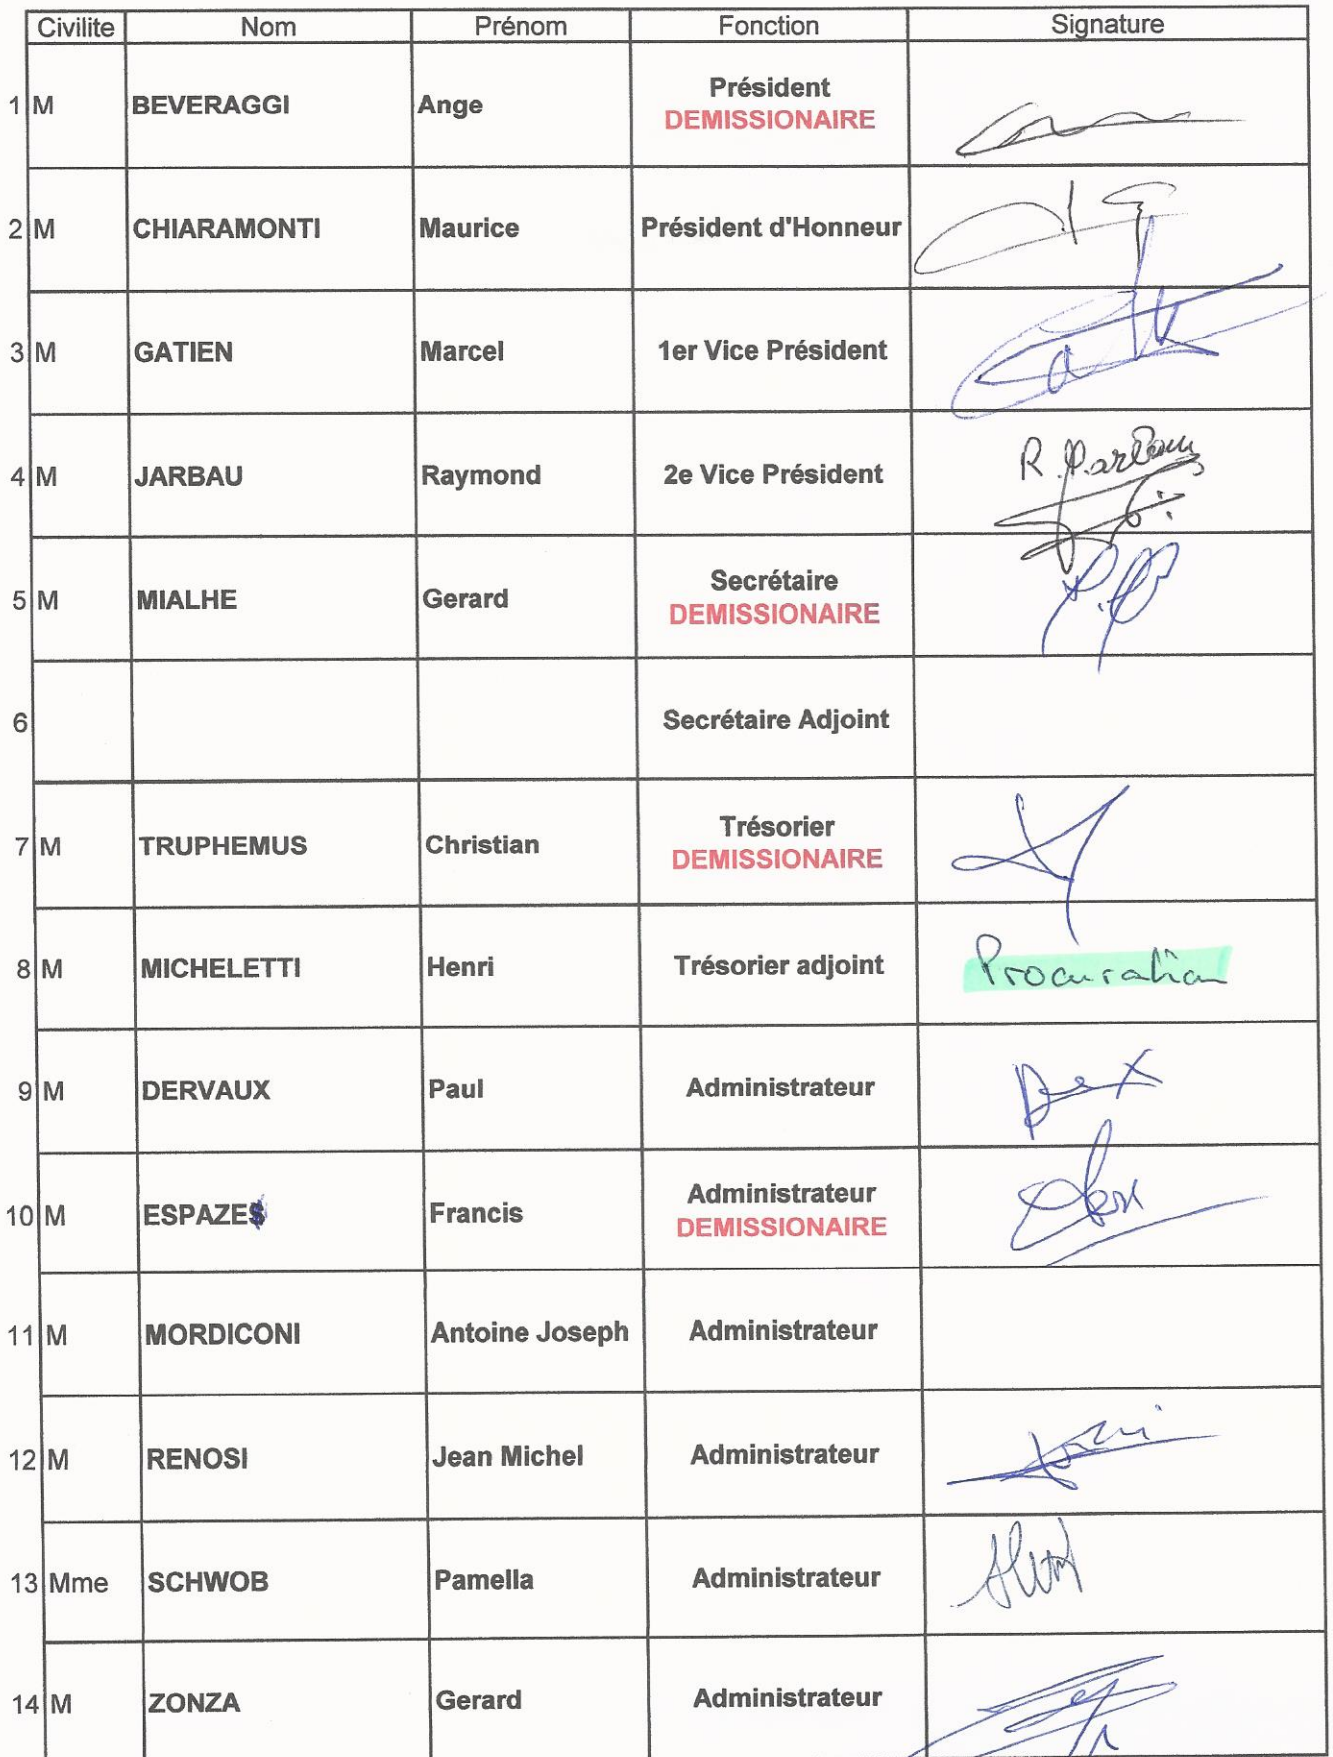 Civilite Nom Prénom Fonction Signature
1 M BEVERAGGI Ange Président
DEMISSIONAIRE
2 M CHIARAMONTI Maurice Président d'Honneur
3 M GATIEN Marcel 1er Vice Président
4 M JARBAU Raymond 2e Vice Président
5 M MIALHE Gerard Secrétaire
DEMISSIONAIRE
6 Secrétaire Adjoint
7 M TRUPHEMUS Christian Trésorier
DEMISSIONAIRE
8 M MICHELETTI Henri Trésorier adjoint Procuration
9 M DERVAUX Paul Administrateur
10 M ESPAZE Francis Administrateur
DEMISSIONAIRE
11 M MORDICONI Antoine Joseph Administrateur
12 M RENOSI Jean Michel Administrateur
13 Mme SCHWOB Pamella Administrateur
14 M ZONZA Gerard Administrateur